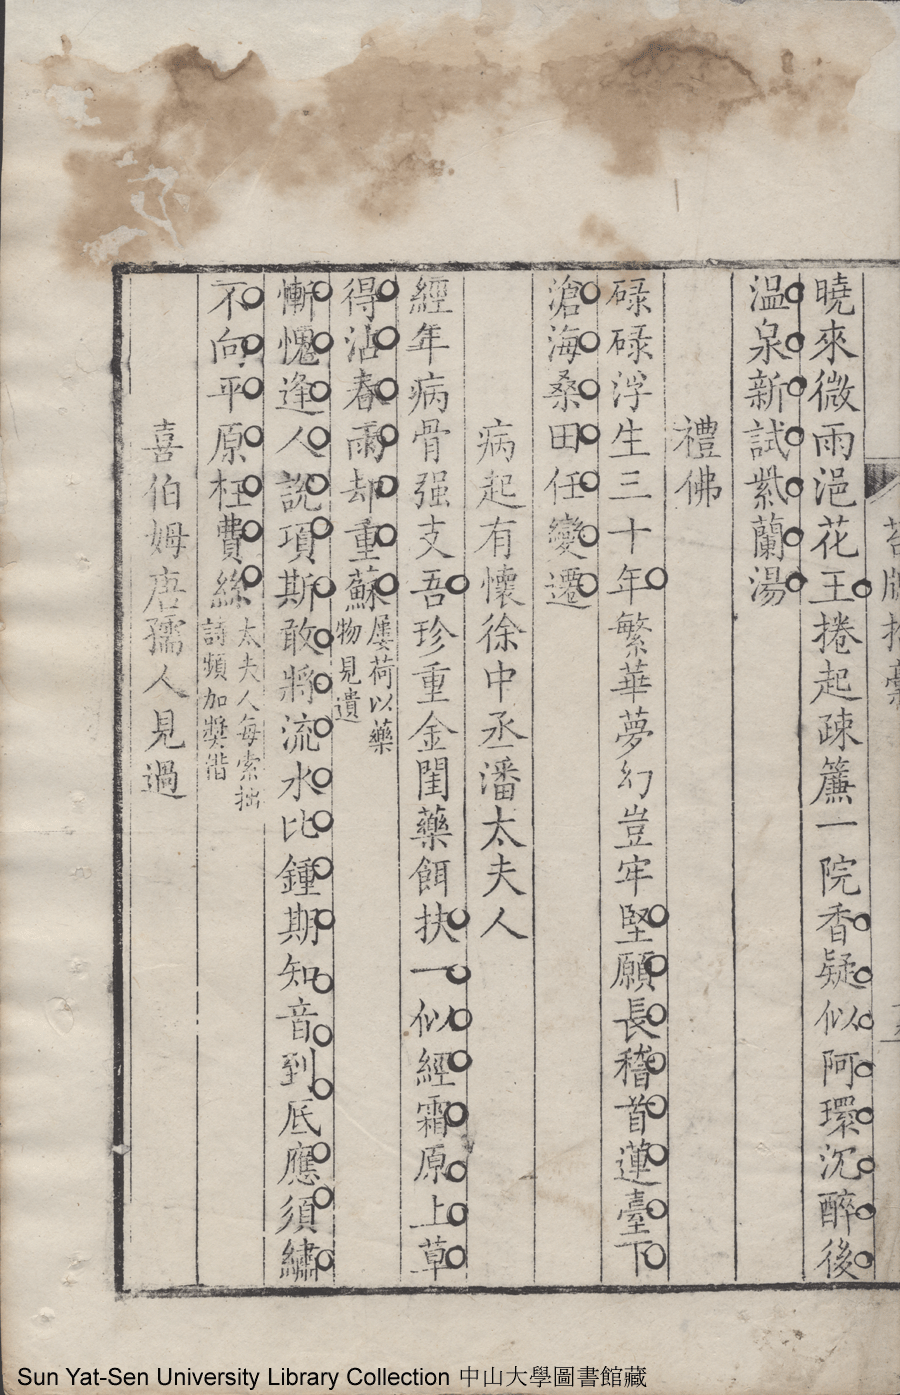 曉來微雨浥花王捲起疎簾一院香疑似阿環沉醉後
溫泉新試紫蘭湯
禮佛
碌碌浮生三十年繁華夢幻豈牢堅願長稽首蓮臺下
滄海桑田任變遷
病起有懷徐中丞潘太夫人
經年病骨强支吾珍重金閨藥餌扶一似經霜原上草
得沾春雨却重蘇屢荷以藥物見遺
慚愧逢人說項斯敢將流水比鍾期知音到底應須繡
不向平原枉費絲太夫人每索拙詩頻加獎借
喜伯姆唐孺人見過
Sun Yat-Sen University Library Collection 中山大學圖書館藏